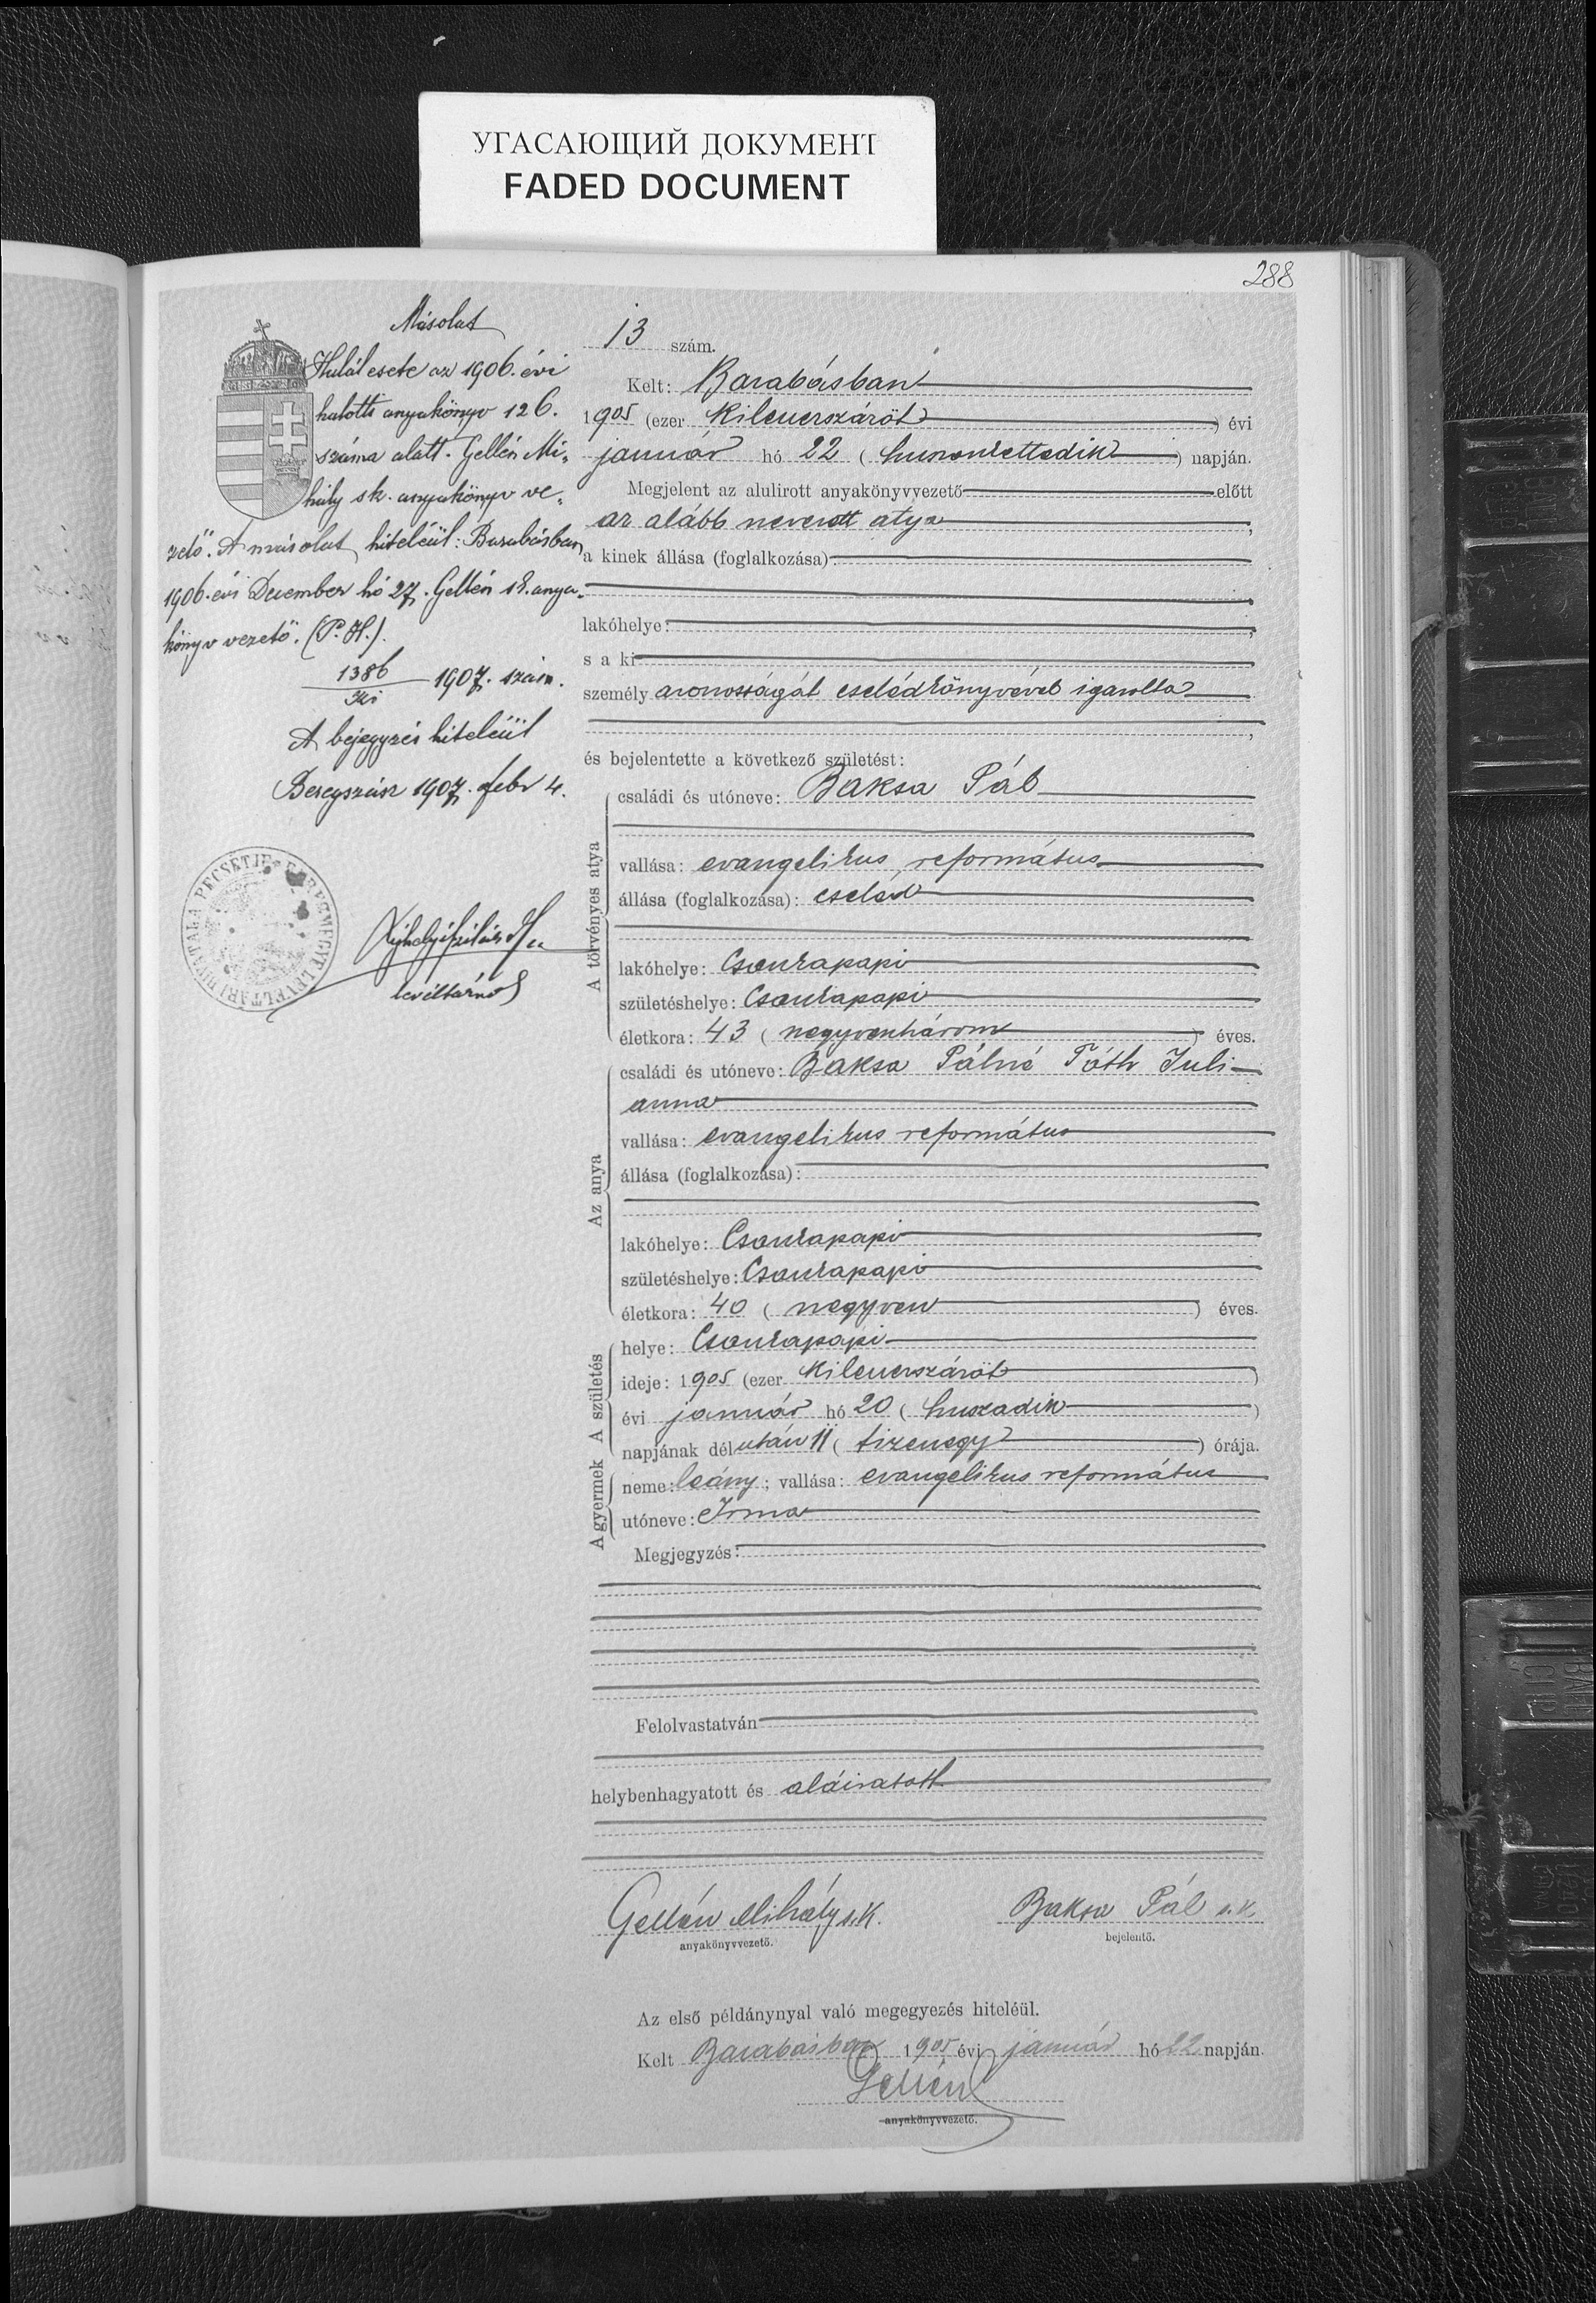 УГАСАЮЩИЙ ДОКУМЕНТ
FADED DOCUMENT
288
Másolat
Halálesete az 1906. évi
halotti anyakönyv 126.
száma alatt. Gellén Mi„
hály sk. anyakönyv ve„
zető. A másolat hiteléül: Barabásban
1906. évi December hó 27. Gellén sk. anya„
könyv vezető. (P. H.)
1386 1907. szám.
A bejegyzés hiteléül
Beregszász 1907. febr 4.
levéltárnok
13 szám.
Kelt: Barabásban
1905 (ezer kilencszázöt) évi
január hó 22 (huszonkettedik) napján.
Megjelent az alulirott anyakönyvvezető előtt
az alább nevezett atya,
a kinek állása (foglalkozása):
lakóhelye:
s a ki
személy azonosságát cselédkönyvével igazolta
és bejelentette a következő születést:
A törvényes atya
családi és utóneve: Baksa Pál
vallása: evangelikus református
állása (foglalkozása): cseléd
lakóhelye: Csonkapapi
születéshelye: Csonkapapi
életkora: 43 (negyvenhárom) éves.
Az anya
családi és utóneve: Baksa Pálné Tóth Juli-
anna
vallása: evangelikus református
állása (foglalkozása):
lakóhelye: Csonkapapi
születéshelye: Csonkapapi
életkora: 40 (negyven) éves.
A születés
helye: Csonkapapi
ideje: 1905 (ezer kilencszázöt)
évi január hó 20 (huszadik)
napjának délután 11 (tizenegy) órája.
A gyermek
neme: leány; vallása: evangelikus református
utóneve: Irma
Megjegyzés:
Felolvastatván
helybenhagyatott és aláiratott
Gellén Mihály s.k. Baksa Pál s.k.
anyakönyvvezető. bejelentő.
Az első példánynyal való megegyezés hiteléül.
Kelt Barabásban 1905 évi január hó 22 napján.
Gellén
anyakönyvvezető.